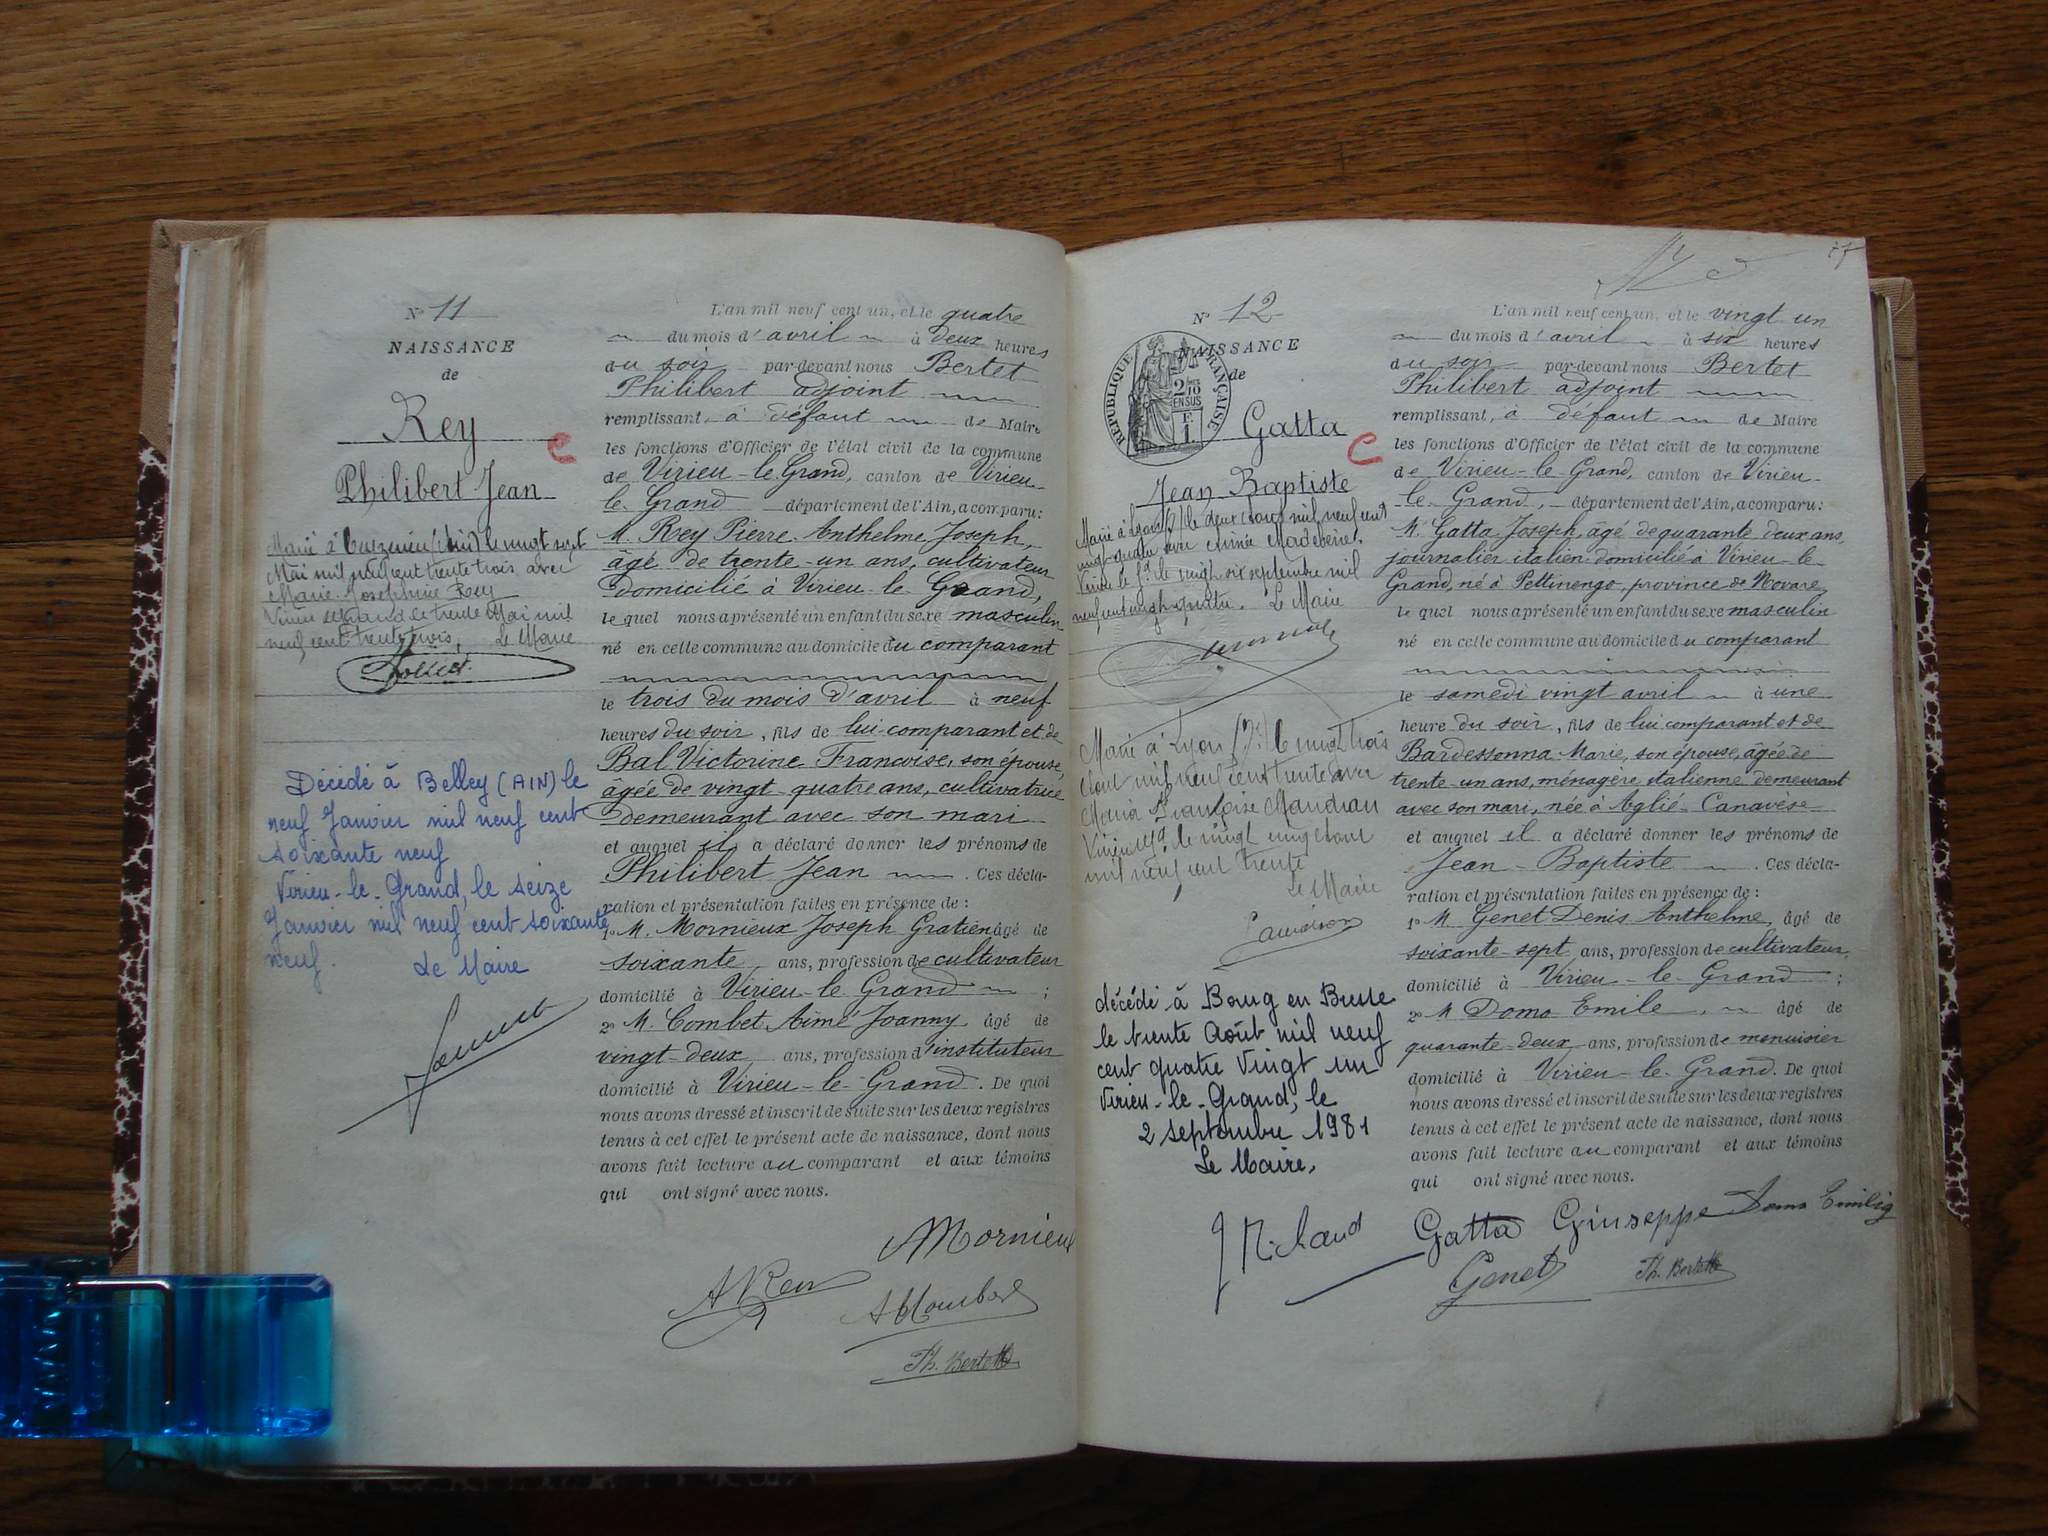 N° 11
NAISSANCE
de
Rey
Philibert Jean
Marié à (Ain) le vingt sept
Mai mil neuf cent trente trois avec
Marie Joséphine Rey
Virieu le Grand le trente Mai mil
neuf cent trente trois, Le Maire
Décédé à Belley (AIN) le
neuf Janvier mil neuf cent
soixante neuf
Virieu-le-Grand, le seize
Janvier mil neuf cent soixante
neuf. Le Maire
L'an mil neuf cent un, et le quatre
du mois d'avril à deux heures
du soir par-devant nous Bertet
Philibert adjoint
remplissant, à défaut de Maire
les fonctions d'Officier de l'état civil de la commune
de Virieu-le-Grand, canton de Virieu-
le Grand département de l'Ain, a comparu :
M. Rey Pierre Anthelme Joseph,
âgé de trente-un ans, cultivateur
domicilié à Virieu-le-Grand,
lequel nous a présenté un enfant du sexe masculin
né en cette commune au domicile du comparant
le trois du mois d'avril à neuf
heures du soir, fils de lui comparant et de
Bal Victorine Francoise, son épouse,
âgée de vingt-quatre ans, cultivatrice
demeurant avec son mari
et auquel il a déclaré donner les prénoms de
Philibert Jean . Ces décla-
ration et présentation faites en présence de :
1° M. Mornieux Joseph Gratien âgé de
soixante ans, profession de cultivateur
domicilié à Virieu-le-Grand ;
2° M. Combet Aimé Joanny, âgé de
vingt-deux ans, profession d'instituteur
domicilié à Virieu-le-Grand. De quoi
nous avons dressé et inscrit de suite sur les deux registres
tenus à cet effet le présent acte de naissance, dont nous
avons fait lecture au comparant et aux témoins
qui ont signé avec nous.
Mornieux
A Rey
Th. Bertet
N° 12
NAISSANCE
de
RÉPUBLIQUE FRANÇAISE
2/10
EN SUS
Gatta
Jean-Baptiste
Marié à Lyon le deux mil neuf cent
vingt-quatre avec Aimée
Virieu le Gd le vingt six septembre mil
neuf cent vingt quatre. Le Maire
Marié à Lyon le vingt trois
Août mil neuf cent trente avec
Maria Françoise
Virieu le Gd le vingt cinq Août
mil neuf cent trente
Le Maire
décédé à Bourg en Bresse
le trente Août mil neuf
cent quatre vingt un
Virieu-le-Grand, le
2 septembre 1981
Le Maire,
L'an mil neuf cent un, et le vingt un
du mois d'avril à six heures
du soir par-devant nous Bertet
Philibert adjoint
remplissant, à défaut de Maire
les fonctions d'Officier de l'état civil de la commune
de Virieu-le-Grand, canton de Virieu-
le-Grand, département de l'Ain, a comparu :
M. Gatta Joseph, âgé de quarante deux ans,
journalier italien domicilié à Virieu-le-
Grand, né à Pettinengo, province de Novare
lequel nous a présenté un enfant du sexe masculin
né en cette commune au domicile du comparant
le samedi vingt avril à une
heure du soir, fils de lui comparant et de
Bardessonna Marie, son épouse, âgée de
trente-un ans, ménagère italienne demeurant
avec son mari, née à Aglié-Canavèse
et auquel il a déclaré donner les prénoms de
Jean-Baptiste . Ces décla-
ration et présentation faites en présence de :
1° M. Genet Denis Anthelme, âgé de
soixante-sept ans, profession de cultivateur,
domicilié à Virieu-le-Grand ;
2° M Domo Emile, âgé de
quarante-deux ans, profession de menuisier
domicilié à Virieu-le-Grand. De quoi
nous avons dressé et inscrit de suite sur les deux registres
tenus à cet effet le présent acte de naissance, dont nous
avons fait lecture au comparant et aux témoins
qui ont signé avec nous.
Gatta Giuseppe Domo Emilio
Genet Th. Bertet